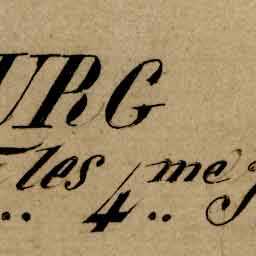 URG
les 4.me